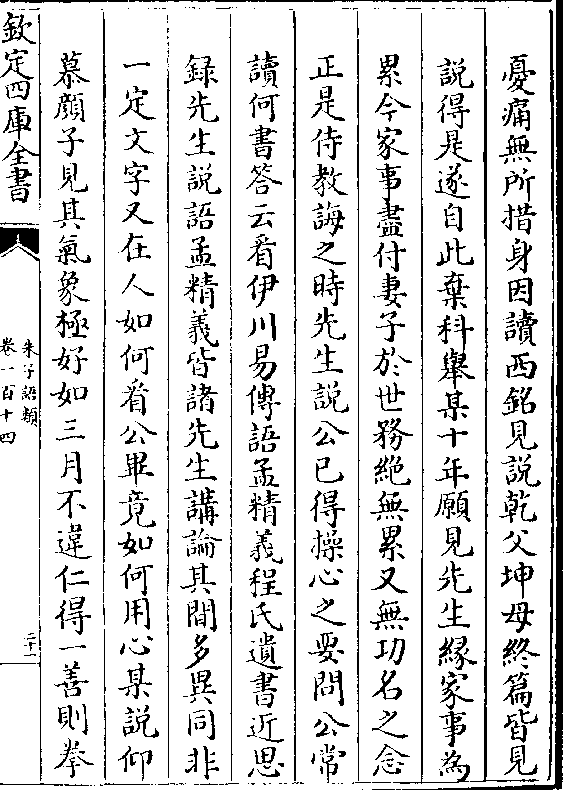 憂痛無所措身因讀西銘見說乾父坤母終篇皆見
說得是遂自此棄科舉某十年願見先生緣家事為
累今家事盡付妻子於世務絶無累又無功名之念
正是侍教誨之時先生說公已得操心之要問公常
讀何書答云看伊川易傳語孟精義程氏遺書近思
録先生說語孟精義皆諸先生講論其間多異同非
一定文字又在人如何看公畢竟如何用心某說仰
慕顔子見其氣象極好如三月不違仁得一善則拳
欽定四庫全書
朱子語類
卷一百十四
二十二